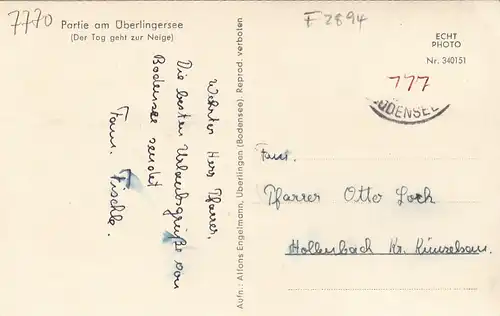 7770
Partie am Überlingersee
(Der Tag geht zur Neige)
Werter Herr Pfarrer,
Die besten Urlaubsgrüße vom
Bodensee sendet
Fam. Fischle.
Aufn.: Alfons Engelmann, Überlingen (Bodensee). Reprod. verboten
F 2894
ECHT
PHOTO
Nr. 340151
177
ODENSEE
Fam.
Pfarrer Otto Loch
Hollenbach Kr. Künzelsau.